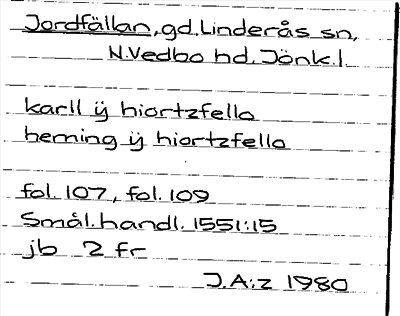 Jordfällan, gd. Linderås sn,
N. Vedbo hd. Jönk. l
karll ÿ hiortzfello
heming ÿ hiortzfello
fol. 107, fol. 109
Smål. handl. 1551:15
jb 2 fr
J.A:z 1980